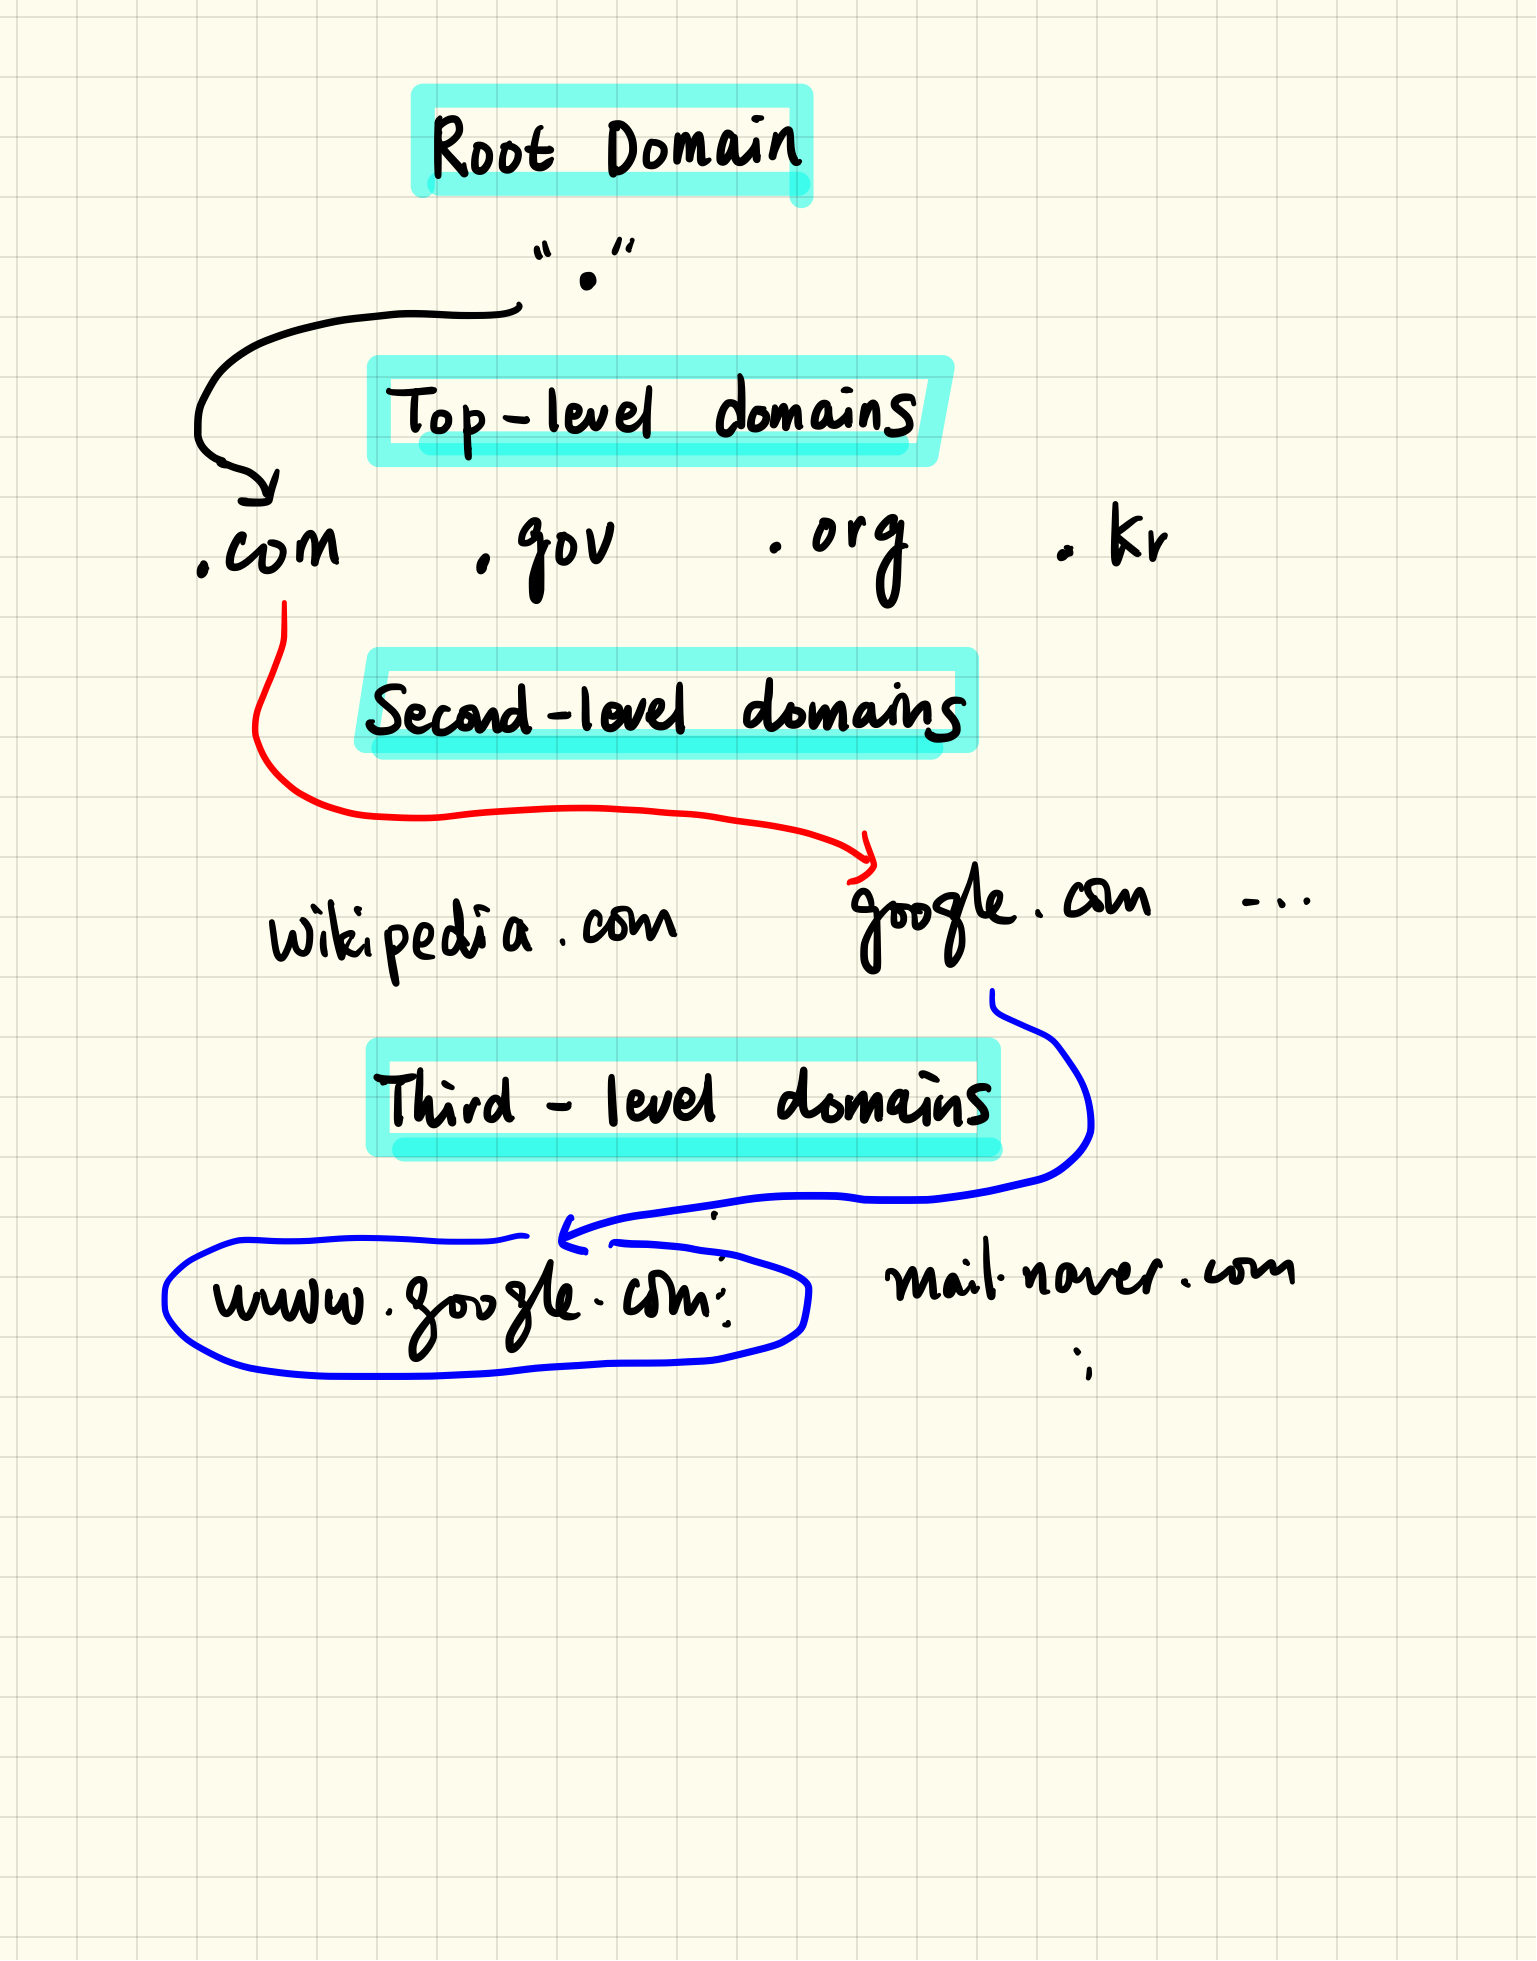 Root Domain
"."
Top-level domains
.com .gov .org .kr
Second-level domains
wikipedia.com google.com ...
Third-level domains
www.google.com mail.naver.com